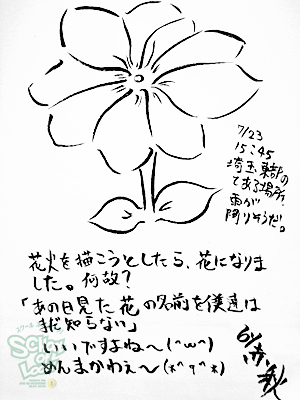 7/23
15:45
埼玉東部の
とある場所。
雨が
降りそうだ。
花火を描こうとしたら、花になりま
した。何故？
「あの日見た花の名前を僕達は
まだ知らない」
いいですよね〜(^ω^)
めんまかわぇ〜(*^q^*)